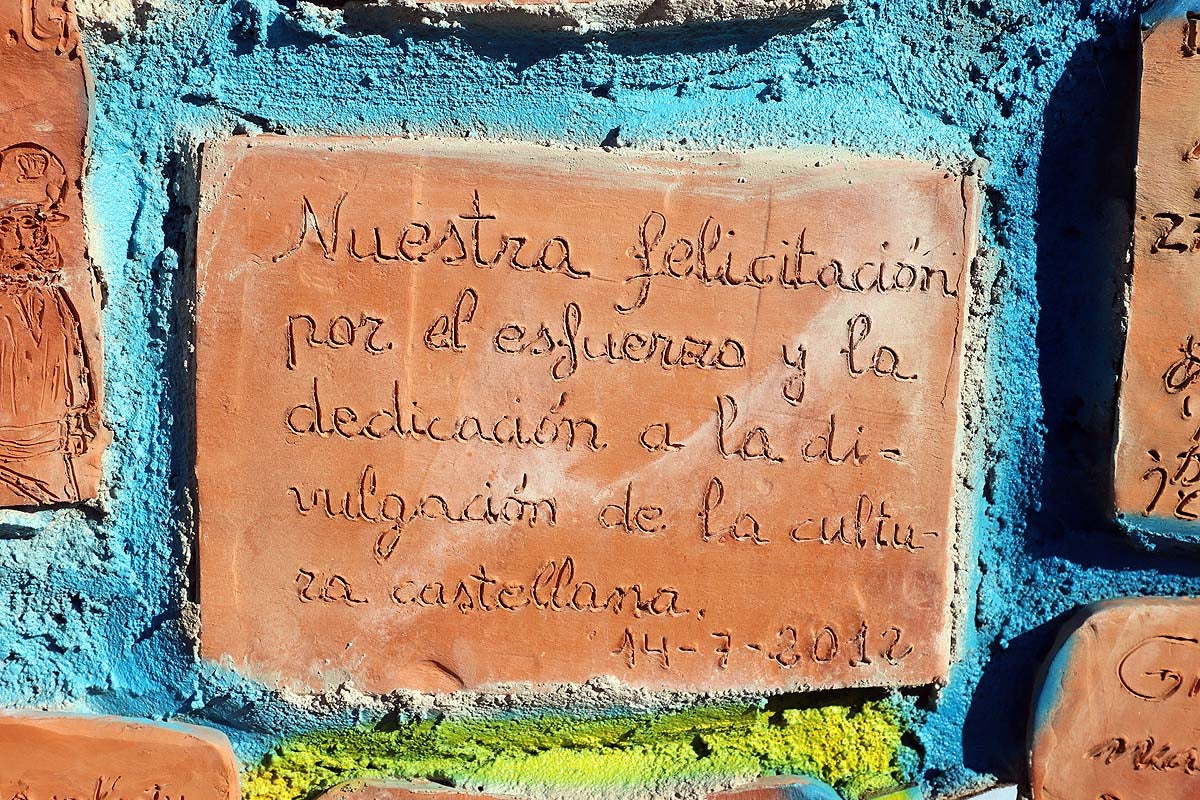 Nuestra felicitación
por el esfuerzo y la
dedicación a la di-
vulgación de la cultu-
ra castellana.
14-7-2012